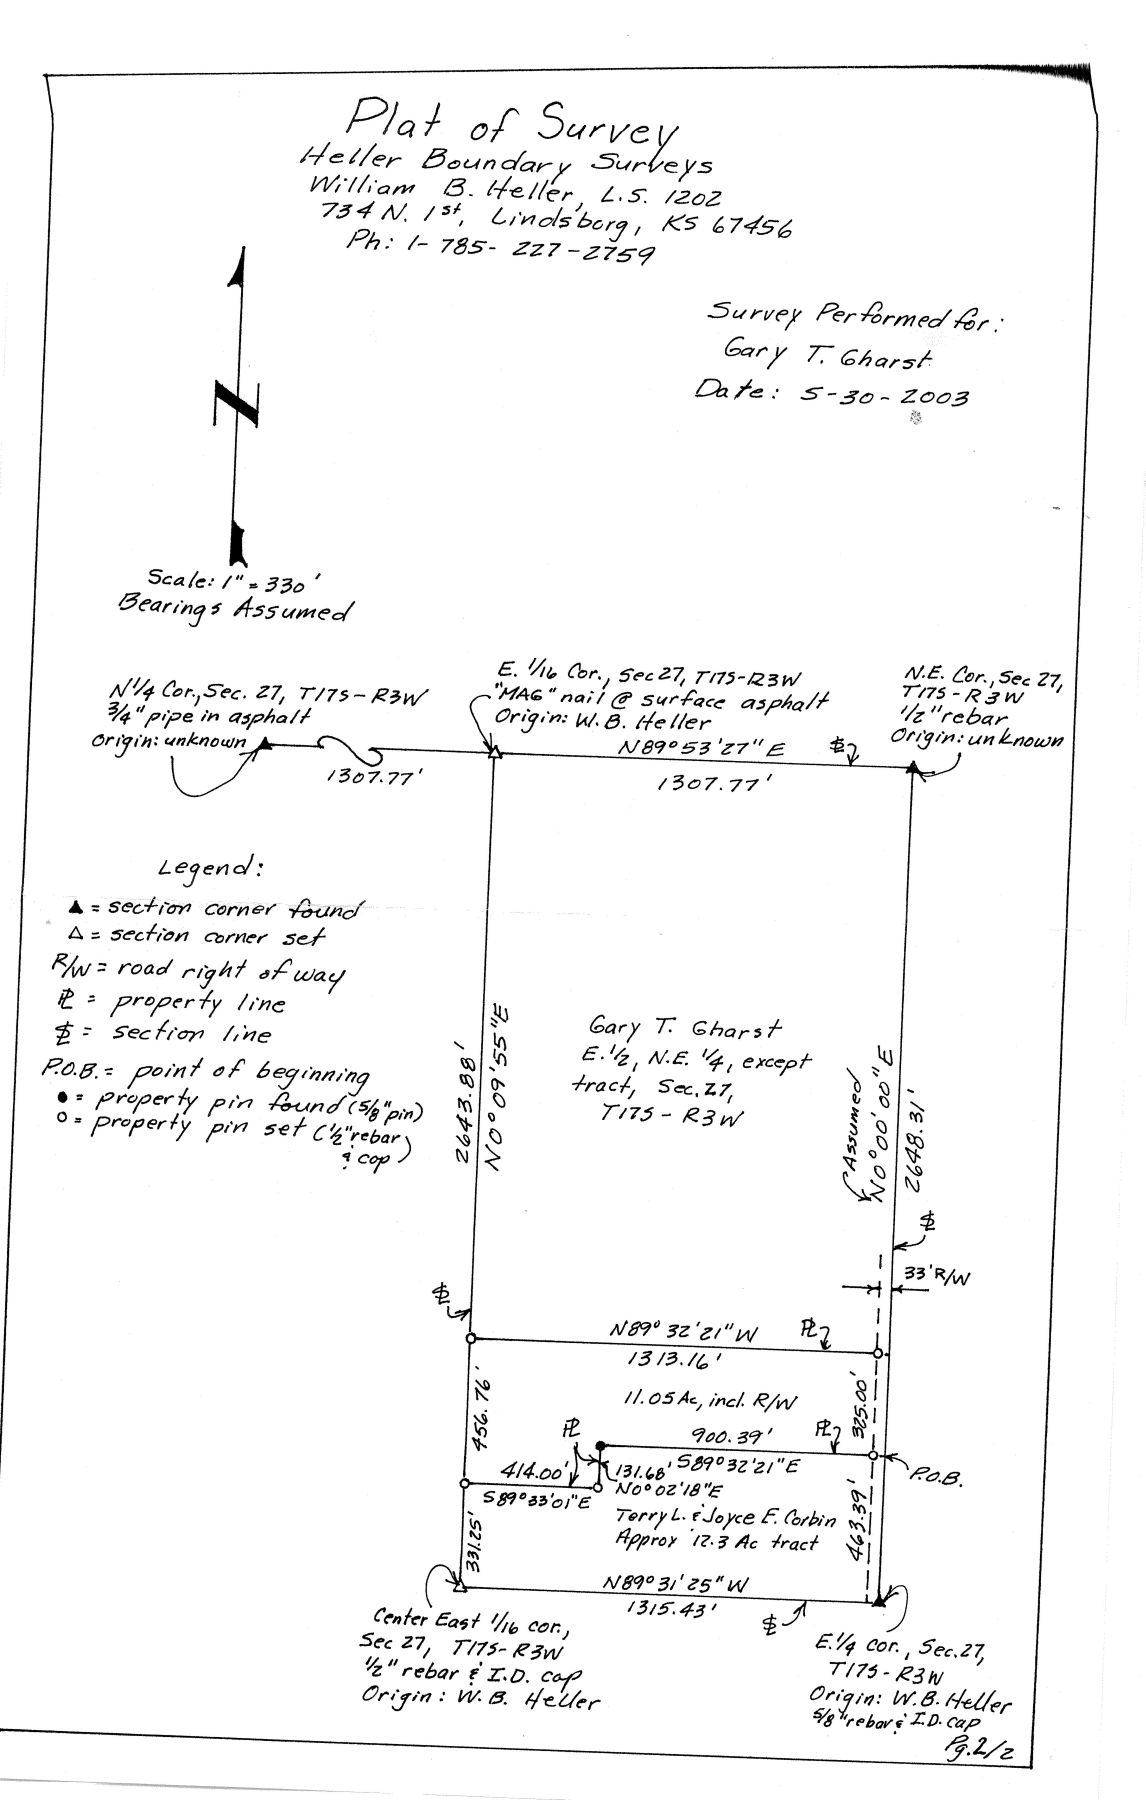 Plat of Survey
Heller Boundary Surveys
William B. Heller, L.S. 1202
734 N. 1st, Lindsborg, KS 67456
Ph: 1-785-227-2759
Survey Performed for:
Gary T. Gharst
Date: 5-30-2003
N
Scale: 1" = 330'
Bearings Assumed
N 1/4 Cor., Sec. 27, T17S-R3W
3/4" pipe in asphalt
Origin: unknown
1307.77'
E. 1/16 Cor., Sec 27, T17S-R3W
"MAG" nail @ surface asphalt
Origin: W.B. Heller
N89°53'27"E
1307.77'
N.E. Cor., Sec 27,
T17S-R3W
1/2" rebar
Origin: unknown
Legend:
▲ = section corner found
△ = section corner set
R/W = road right of way
PL = property line
SL = section line
P.O.B. = point of beginning
● = property pin found (5/8" pin)
○ = property pin set (1/2" rebar
& cap)
2643.88'
N0°09'55"E
Gary T. Gharst
E. 1/2, N.E. 1/4, except
tract, Sec. 27,
T17S-R3W
Assumed
N0°00'00"E
2648.31'
SL
33' R/W
SL
N89°32'21"W
PL
1313.16'
456.76'
11.05 Ac, incl. R/W
325.00'
PL
900.39'
PL
S89°32'21"E
P.O.B.
414.00'
S89°33'01"E
131.68'
N0°02'18"E
Terry L. & Joyce E. Corbin
Approx 12.3 Ac tract
463.39'
331.25'
N89°31'25"W
1315.43'
SL
Center East 1/16 cor.,
Sec 27, T17S-R3W
1/2" rebar & I.D. cap
Origin: W.B. Heller
E. 1/4 cor., Sec. 27,
T17S-R3W
Origin: W.B. Heller
5/8" rebar & I.D. cap
Pg. 2/2